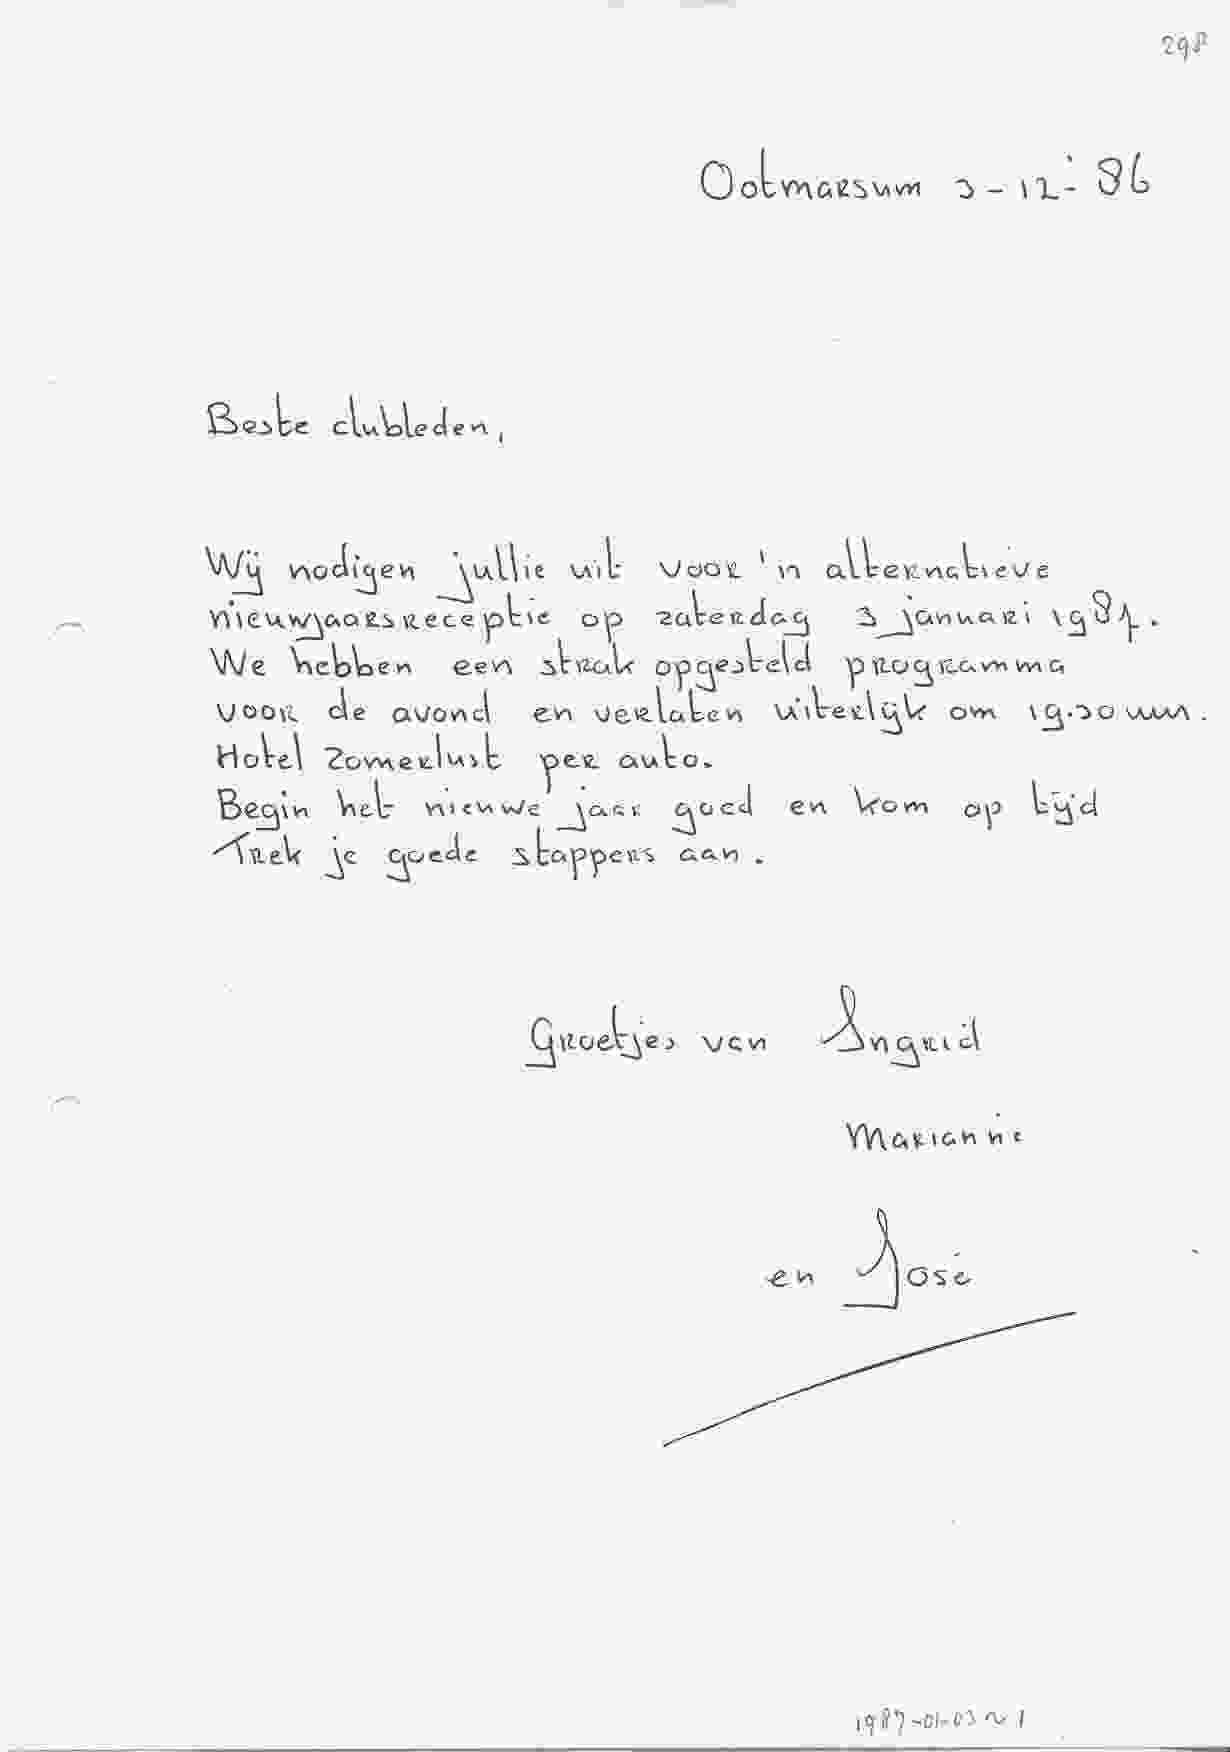 298
Ootmarsum 3-12-'86
Beste clubleden,
Wij nodigen jullie uit voor 'n alternatieve
nieuwjaarsreceptie op zaterdag 3 januari 1987.
We hebben een strak opgesteld programma
voor de avond en verlaten uiterlijk om 19.30 uur.
Hotel Zomerlust per auto.
Begin het nieuwe jaar goed en kom op tijd
Trek je goede stappers aan.
Groetjes van Ingrid
Marianne
en José
1987-01-03 ~ 1